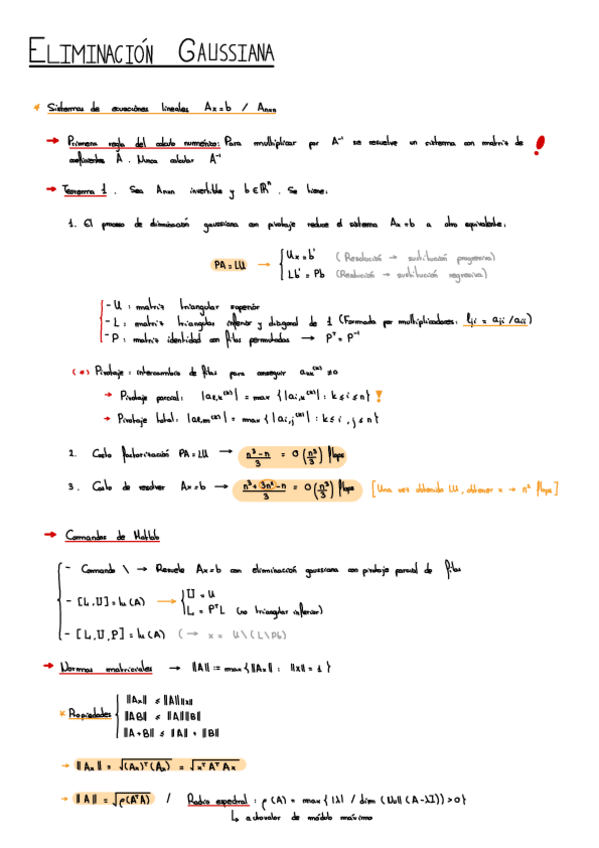 ELIMINACIÓN GAUSSIANA
* Sistemas de ecuaciones lineales Ax=b / Anxn
→ Primera regla del calculo numérico: Para multiplicar por A⁻¹ se resuelve un sistema con matriz de
coeficientes A. Nunca calcular A⁻¹
→ Teorema 1. Sea Anxn invertible y b∈ℝⁿ. Se tiene:
1. El proceso de eliminación gaussiana con pivotaje reduce el sistema Ax=b a otro equivalente:
PA=LU → { Ux=b' (Resolución → sustitución progresiva)
Lb'=Pb (Resolución → sustitución regresiva)
- U: matriz triangular superior
- L: matriz triangular inferior y diagonal de 1 (Formada por multiplicadores: lji = aji/aii)
- P: matriz identidad con filas permutadas → Pᵀ=P⁻¹
(*) Pivotaje: intercambio de filas para conseguir akk⁽ᵏ⁾≠0
→ Pivotaje parcial: |ae,k⁽ᵏ⁾| = max{|ai,k⁽ᵏ⁾| : k≤i≤n} !
→ Pivotaje total: |ae,m⁽ᵏ⁾| = max{|ai,j⁽ᵏ⁾| : k≤i,j≤n}
2. Costo factorización PA=LU → (n³-n)/3 = O(n³/3) flops
3. Costo de resolver Ax=b → (n³+3n²-n)/3 = O(n³/3) flops [Una vez obtenida LU, obtener x → n² flops]
→ Comandos de Matlab
- Comando \ → Resuelve Ax=b con eliminación gaussiana con pivotaje parcial de filas
- [L,U]=lu(A) → { U=U
L=PᵀL (no triangular inferior)
- [L,U,P]=lu(A) (→ x = U\(L\Pb)
→ Normas matriciales → ||A|| := max{||Ax|| : ||x||=1}
* Propiedades { ||Ax|| ≤ ||A||||x||
||AB|| ≤ ||A||||B||
||A+B|| ≤ ||A|| + ||B||
→ ||Ax|| = √(Ax)ᵀ(Ax) = √xᵀAᵀAx
→ ||A|| = √ρ(AᵀA) / Radio espectral: ρ(A) = max{|λ| / dim(Null(A-λI))>0}
↳ autovalor de módulo máximo